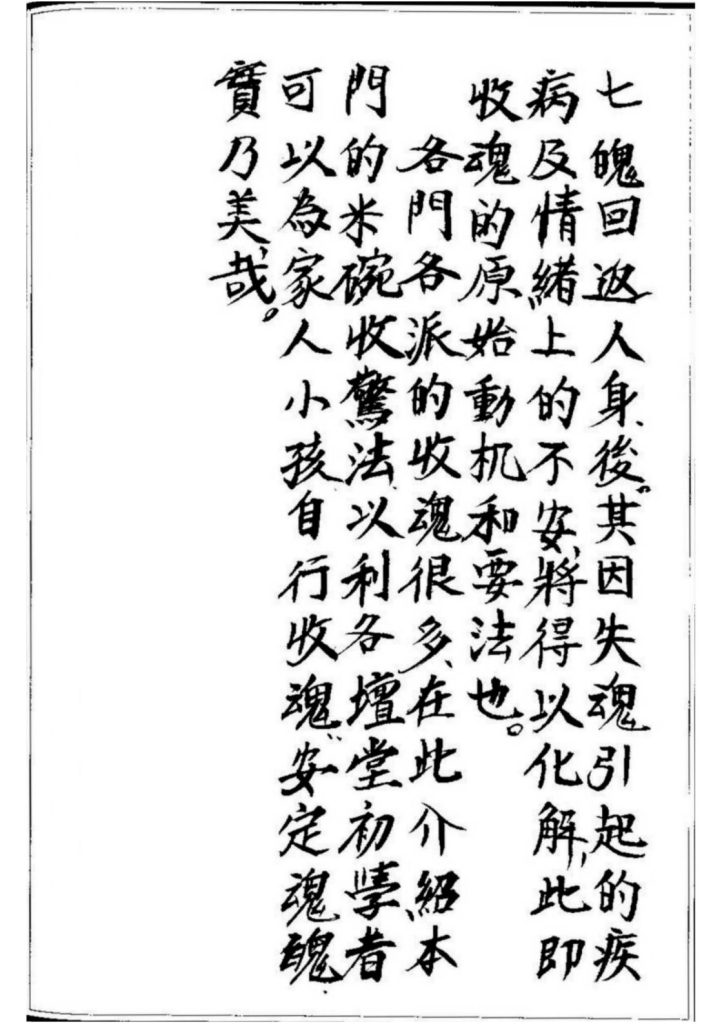 七魄回返人身後，其因失魂引起的疾
病及情緒上的不安，將得以化解，此即
收魂的原始動机和要法也。
各門各派的收魂很多，在此介紹本
門的米碗收驚法，以利各壇堂初學者
可以為家人小孩自行收魂，安定魂魄
實乃美哉。